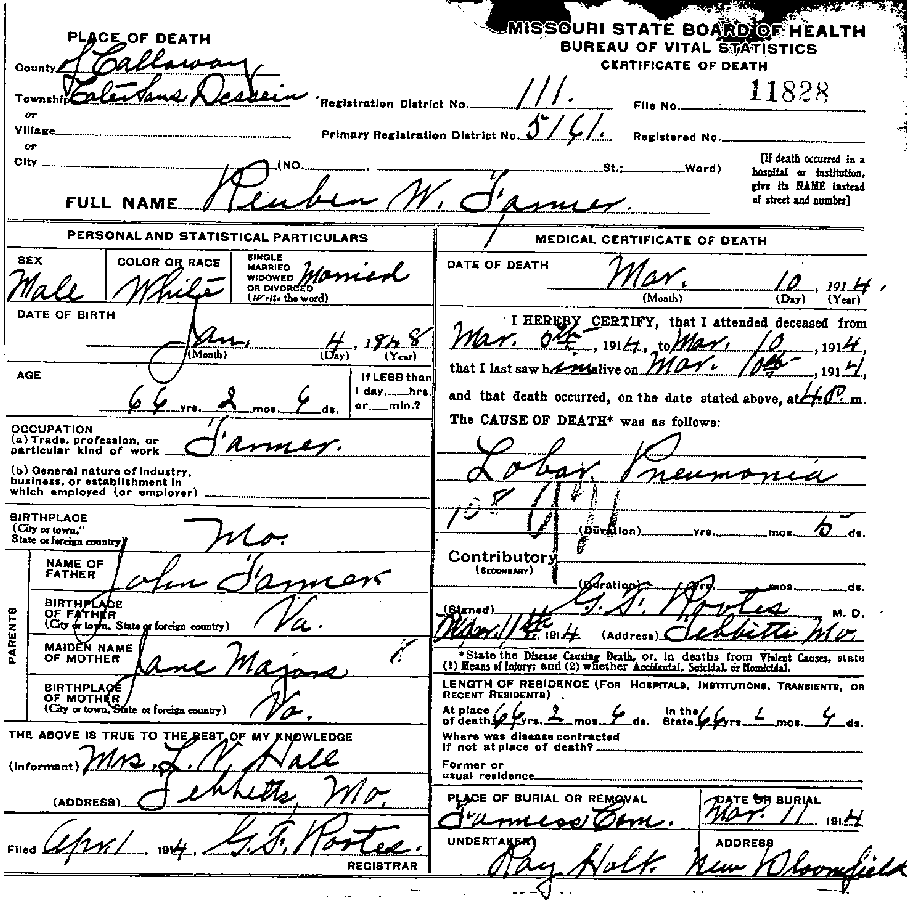 MISSOURI STATE BOARD OF HEALTH
BUREAU OF VITAL STATISTICS
CERTIFICATE OF DEATH
PLACE OF DEATH
County of Callaway
Township Cote Sans Dessein
or
Village
or
City (NO. St.; Ward)
Registration District No. 111. File No. 11828
Primary Registration District No. 5161. Registered No.
[If death occurred in a
hospital or institution,
give its NAME instead
of street and number]
FULL NAME Reuben W. Farmer.
PERSONAL AND STATISTICAL PARTICULARS
SEX
Male
COLOR OR RACE
White
SINGLE
MARRIED
WIDOWED
OR DIVORCED
(Write the word)
Married
DATE OF BIRTH
Jan. 4, 1848
(Month) (Day) (Year)
AGE
66 yrs. 2 mos. 6 ds.
If LESS than
1 day,....hrs.
or....min.?
OCCUPATION
(a) Trade, profession, or
particular kind of work Farmer.
(b) General nature of industry,
business, or establishment in
which employed (or employer)
BIRTHPLACE
(City or town,
State or foreign country) Mo.
PARENTS
NAME OF
FATHER John Farmer
BIRTHPLACE
OF FATHER
(City or town, State or foreign country) Va.
MAIDEN NAME
OF MOTHER Jane Majors
BIRTHPLACE
OF MOTHER
(City or town, State or foreign country) Va.
THE ABOVE IS TRUE TO THE BEST OF MY KNOWLEDGE
(Informant) Mrs. L. V. Hall
(ADDRESS) Tebbetts, Mo.
Filed Apr 1 1914 G. F. Rootes.
REGISTRAR
MEDICAL CERTIFICATE OF DEATH
DATE OF DEATH
Mar. 10, 1914.
(Month) (Day) (Year)
I HEREBY CERTIFY, that I attended deceased from
Mar. , 1914, to Mar. 10, 1914,
that I last saw him alive on Mar. 10th 1914,
and that death occurred, on the date stated above, at 4 P. m.
The CAUSE OF DEATH* was as follows:
Lobar Pneumonia
108
(Duration) yrs. mos. 5 ds.
Contributory
(SECONDARY)
(Duration) yrs. mos. ds.
(Signed) G. F. Rootes M. D.
Mar. 11th 1914 (Address) Tebbetts Mo
*State the Disease Causing Death, or, in deaths from Violent Causes, state
(1) Means of Injury; and (2) whether Accidental, Suicidal, or Homicidal.
LENGTH OF RESIDENCE (FOR HOSPITALS, INSTITUTIONS, TRANSIENTS, OR
RECENT RESIDENTS)
At place
of death 66 yrs. 2 mos. 6 ds.
In the
State 66 yrs. 2 mos. 6 ds.
Where was disease contracted
if not at place of death?
Former or
usual residence
PLACE OF BURIAL OR REMOVAL
Cem.
DATE OF BURIAL
Mar. 11 1914
UNDERTAKER
Ray Holt.
ADDRESS
New Bloomfield